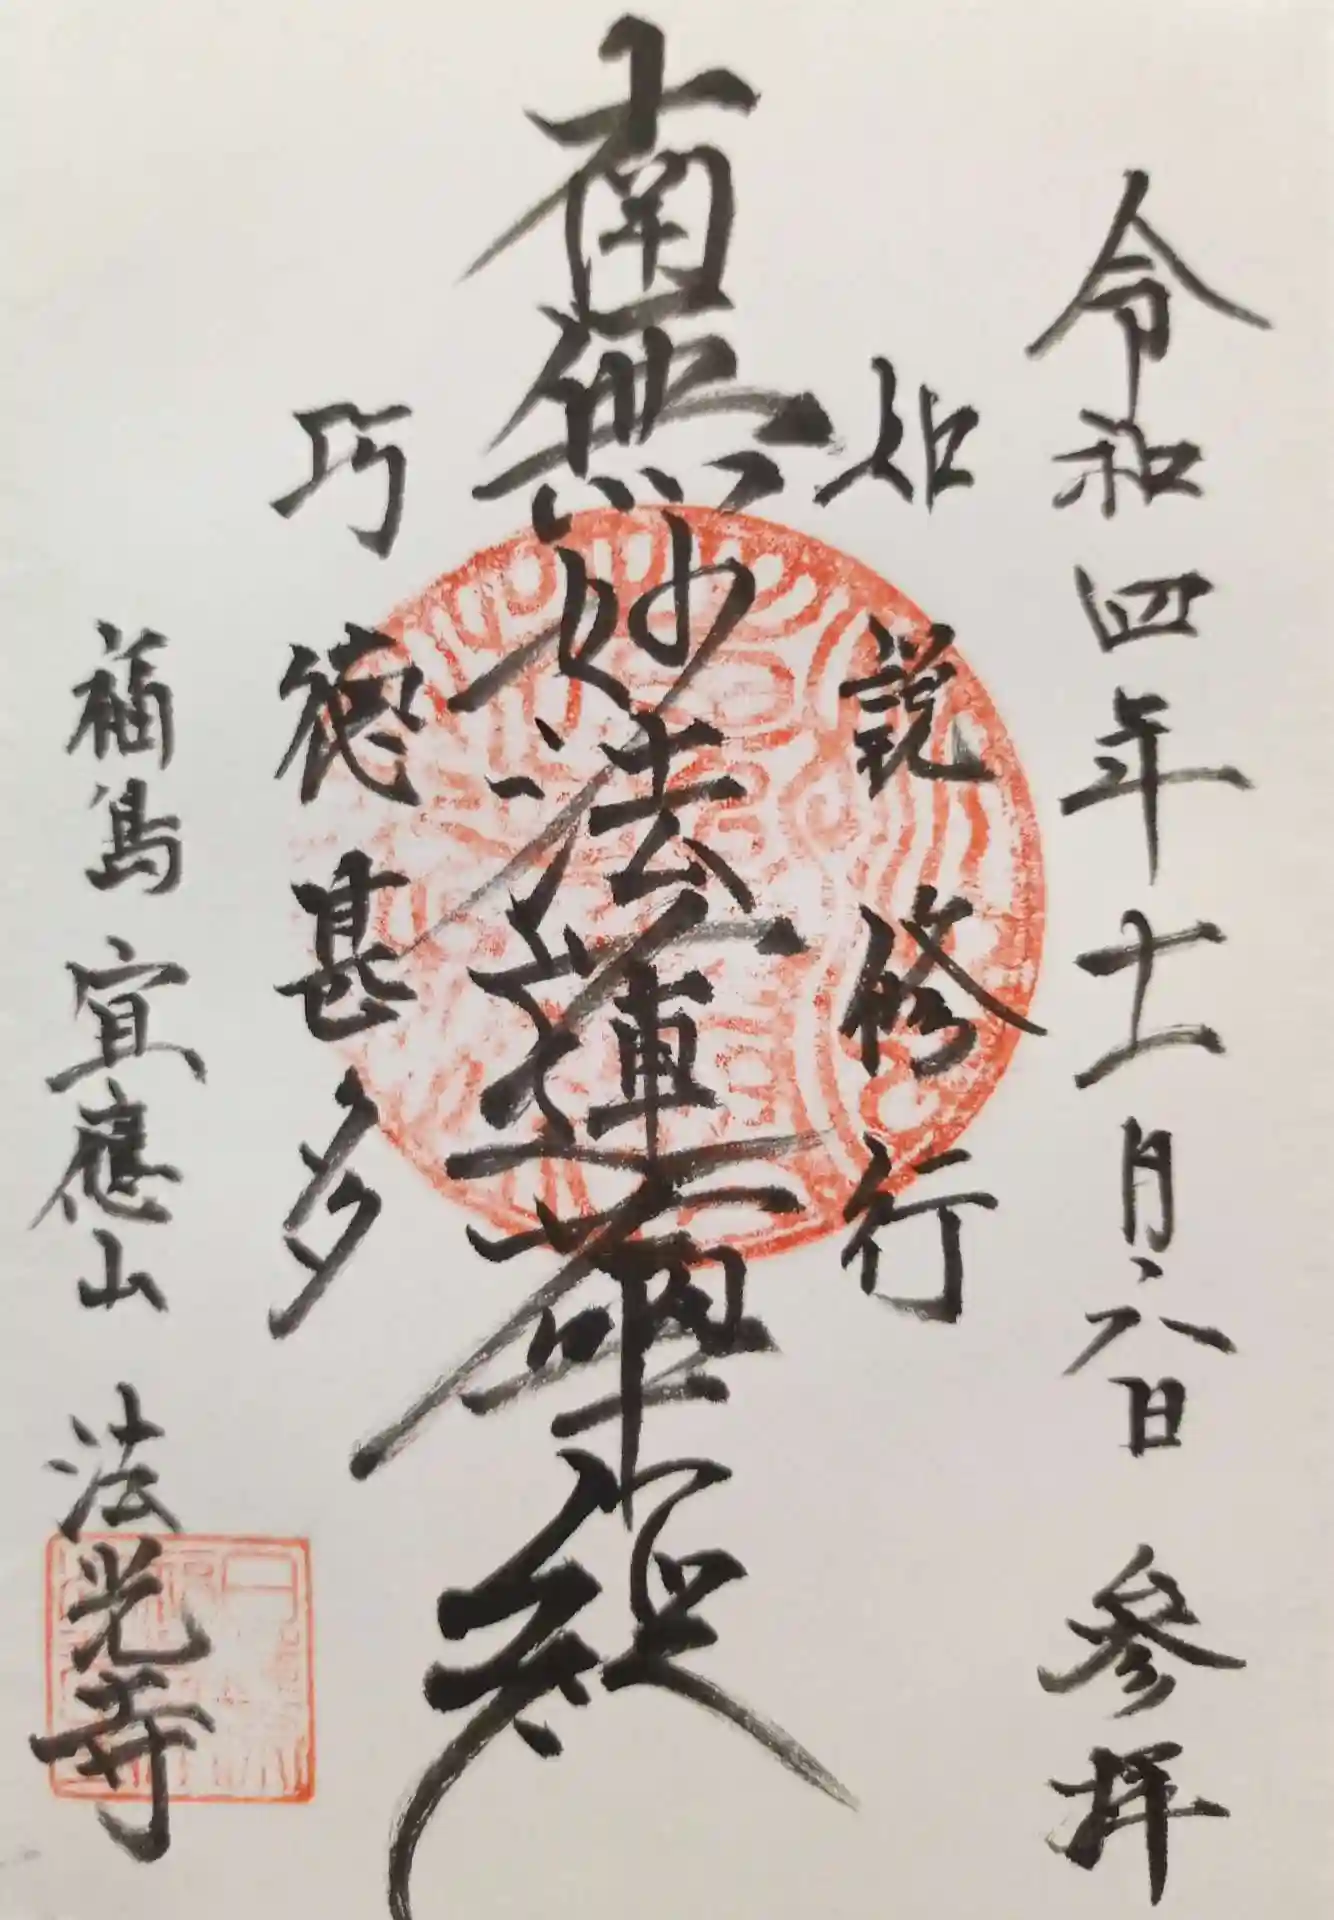 令和四年十一月六日 参拝
如説修行
南無妙法蓮華経
功徳甚多
福島 宜應山 法光寺